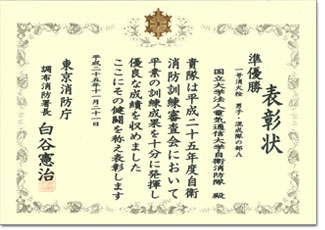 表彰状
準優勝
一号消火栓 男子・混成隊の部A
国立大学法人電気通信大学自衛消防隊 殿
貴隊は平成二十五年度自衛
消防訓練審査会において
平素の訓練成果を十分に発揮し
優良な成績を収めました
ここにその健闘を称え表彰します
平成二十五年十一月二十一日
東京消防庁
調布消防署長 白谷憲治